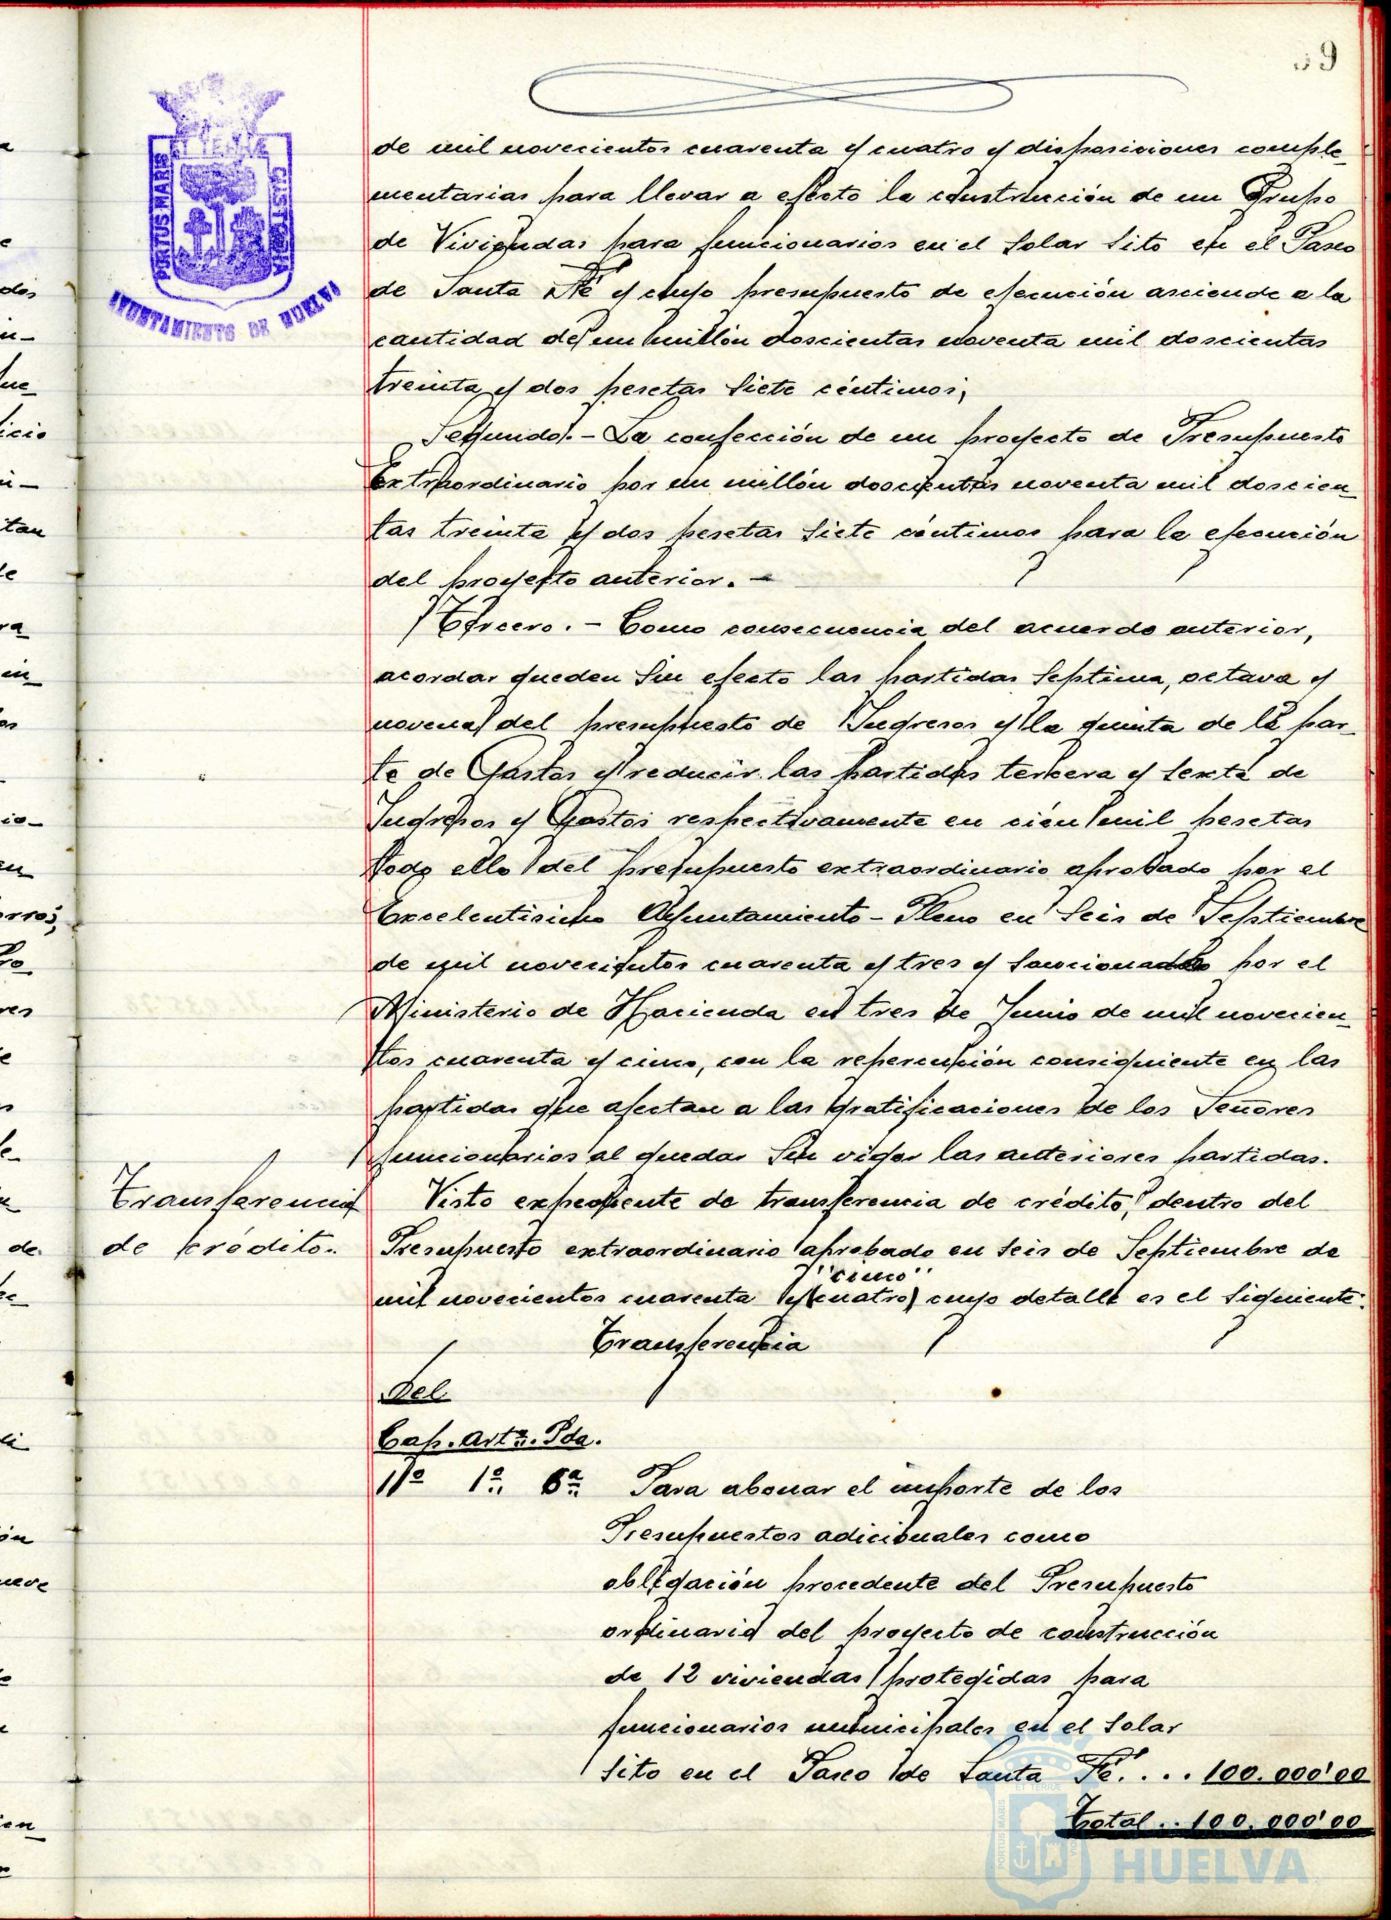 59
ET TERRÆ
PORTUS MARIS
CUSTODIA
AYUNTAMIENTO DE HUELVA
de mil novecientos cuarenta y cuatro y disposiciones comple-
mentarias para llevar a efecto la construcción de un Grupo
de Viviendas para funcionarios en el solar sito en el Paseo
de Santa Fé y cuyo presupuesto de ejecución asciende a la
cantidad de un millón doscientas noventa mil doscientas
treinta y dos pesetas siete céntimos;
Segundo.- La confección de un proyecto de Presupuesto
Extraordinario por un millón doscientas noventa mil doscien-
tas treinta y dos pesetas siete céntimos para la ejecución
del proyecto anterior. -
Tercero. - Como consecuencia del acuerdo anterior,
acordar queden sin efecto las partidas septima, octava y
novena del presupuesto de Ingresos y la quinta de la par-
te de Gastos y reducir las partidas tercera y sexta de
Ingresos y Gastos respectivamente en cién mil pesetas
todo ello del presupuesto extraordinario aprobado por el
Excelentisimo Ayuntamiento-Pleno en seis de Septiembre
de mil novecientos cuarenta y tres y sancionado por el
Ministerio de Hacienda en tres de Junio de mil novecien-
tos cuarenta y cinco, con la repercusión consiguiente en las
partidas que afectan a las gratificaciones de los Señores
funcionarios al quedar sin vigor las anteriores partidas.
Transferencia
de crédito.
Visto expediente de transferencia de crédito, dentro del
Presupuesto extraordinario aprobado en seis de Septiembre de
"cinco"
mil novecientos cuarenta y (cuatro) cuyo detalle es el siguiente:
Transferencia
Del
Cap. Artº. Pda.
11º 1º 6ª Para abonar el importe de los
Presupuestos adicionales como
obligación procedente del Presupuesto
ordinario del proyecto de construcción
de 12 viviendas protegidas para
funcionarios municipales en el solar
sito en el Paseo de Santa Fé. . . . 100.000'00
Total . . 100.000'00
ET TERRÆ
PORTUS MARIS
HUELVA